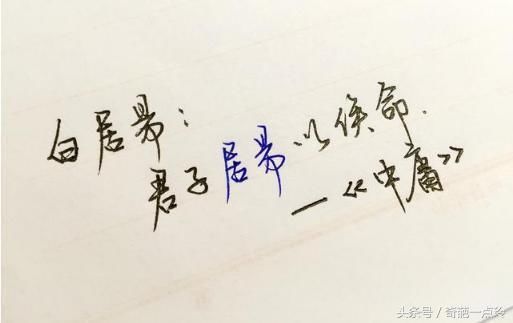 白居易：
君子居易以俟命.
—《中庸》
头条号 / 奇葩一点玲